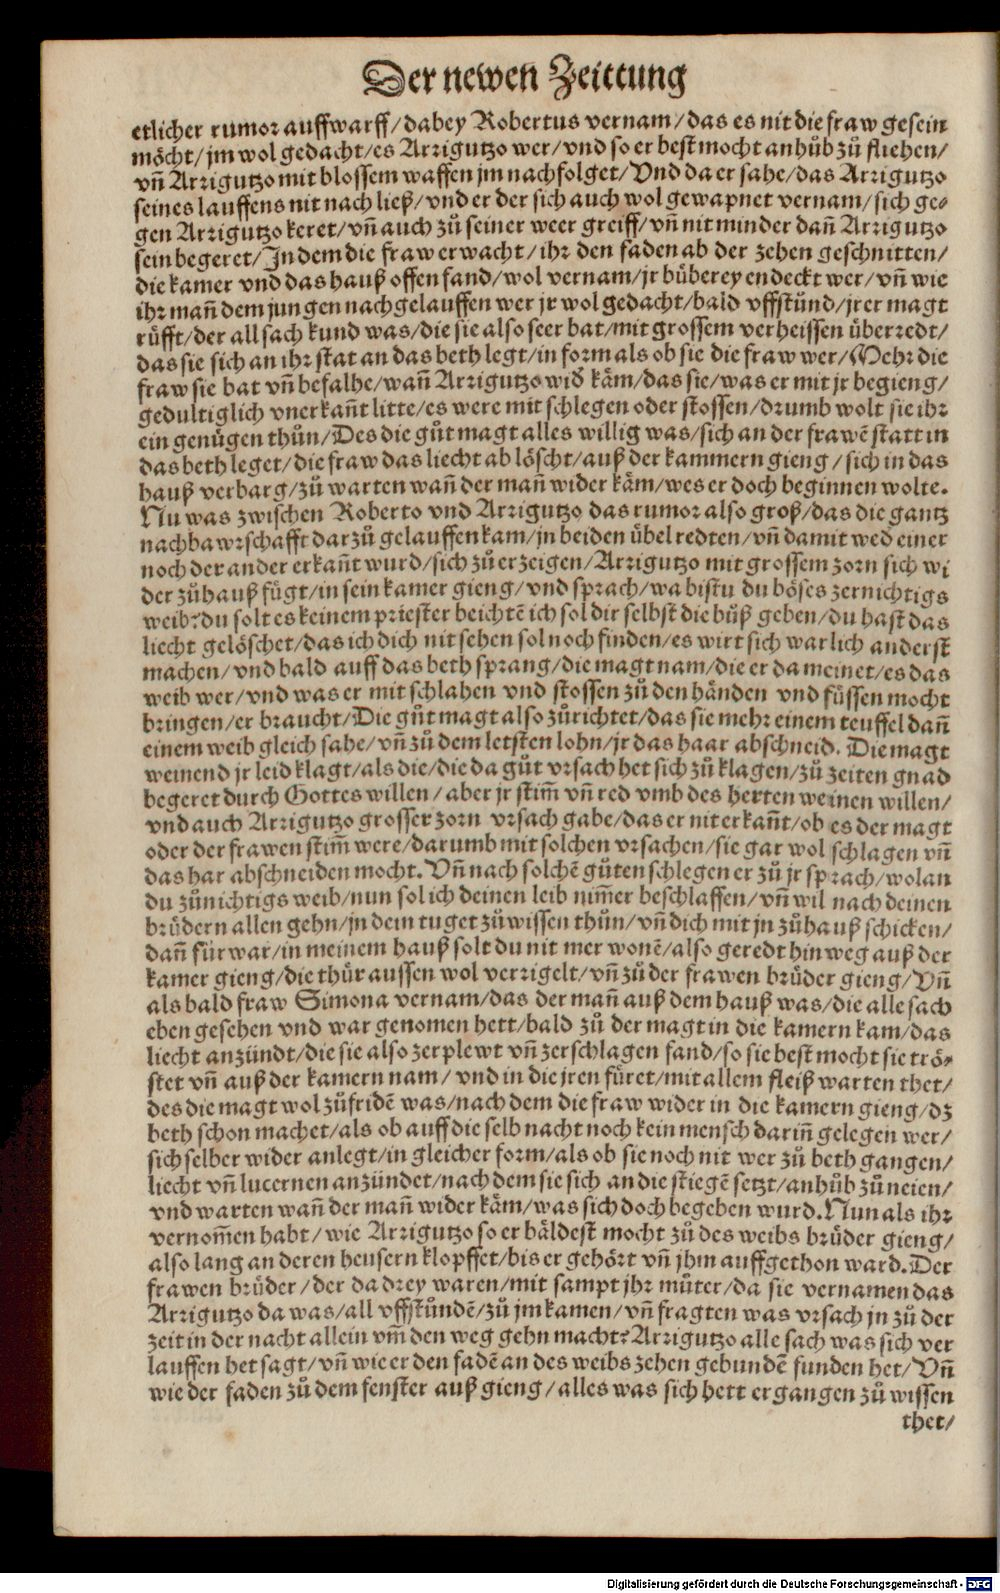 Der newen Zeittung
etlicher rumor auffwarff/dabey Robertus vernam/das es nit die fraw gesein
möcht/jm wol gedacht/es Arrigutzo wer/vnd so er best mocht anhůb zů fliehen/
vñ Arrigutzo mit blossem waffen jm nachfolget/Vnd da er sahe/das Arrigutzo
seines lauffens nit nach ließ/vnd er der sich auch wol gewapnet vernam/sich ge-
gen Arrigutzo keret/vñ auch zů seiner weer greiff/vñ nit minder dañ Arrigutzo
sein begeret/In dem die fraw erwacht/ihr den faden ab der zehen geschnitten/
die kamer vnd das hauß offen fand/wol vernam/jr bůberey endeckt wer/vñ wie
ihr mañ dem jungen nachgelauffen wer jr wol gedacht/bald vffstůnd/jrer magt
růfft/der all sach kund was/die sie also seer bat/mit grossem verheissen überredt/
das sie sich an ihr stat an das beth legt/in form als ob sie die fraw wer/Mehr die
fraw sie bat vñ befalhe/wañ Arrigutzo wid̕ käm/das sie/was er mit jr begieng/
gedultiglich vnerkañt litte/es were mit schlegen oder stossen/drumb wolt sie ihr
ein genůgen thůn/Des die gůt magt alles willig was/sich an der frawē statt in
das beth leget/die fraw das liecht ab löscht/auß der kammern gieng/sich in das
hauß verbarg/zů warten wañ der mañ wider käm/wes er doch beginnen wolte.
Nu was zwischen Roberto vnd Arrigutzo das rumor also groß/das die gantz
nachbawrschafft darzů gelauffen kam/jn beiden übel redten/vñ damit wed einer
noch der ander erkañt wurd/sich zů erzeigen/Arrigutzo mit grossem zorn sich wi
der zů hauß fügt/in sein kamer gieng/vnd sprach/wa bistu du böses zernichtigs
weib? du solt es keinem priester beichtē ich sol dir selbst die bůß geben/du hast das
liecht gelöschet/das ich dich nit sehen sol noch finden/es wirt sich warlich anderst
machen/vnd bald auff das beth sprang/die magt nam/die er da meinet/es das
weib wer/vnd was er mit schlahen vnd stossen zů den händen vnd füssen mocht
bringen/er braucht/Die gůt magt also zůrichtet/das sie mehr einem teuffel dañ
einem weib gleich sahe/vñ zů dem letsten lohn/jr das haar abschneid. Die magt
weinend jr leid klagt/als die/die da gůt vrsach het sich zů klagen/zů zeiten gnad
begeret durch Gottes willen/aber jr stim̄ vñ red vmb des herten weinen willen/
vnd auch Arrigutzo grosser zorn vrsach gabe/das er nit erkañt/ob es der magt
oder der frawen stim̄ were/darumb mit solchen vrsachen/sie gar wol schlagen vñ
das har abschneiden mocht. Vñ nach solchē gůten schlegen er zů jr sprach/wolan
du zůnichtigs weib/nun sol ich deinen leib nim̄er beschlaffen/vñ wil nach deinen
brůdern allen gehn/jn dein tuget zůwissen thůn/vñ dich mit jn zů hauß schicken/
dañ für war/in meinem hauß solt du nit mer wonē/also geredt hinweg auß der
kamer gieng/die thür aussen wol verrigelt/vñ zů der frawen brůder gieng/Vñ
als bald fraw Simona vernam/das der mañ auß dem hauß was/die alle sach
eben gesehen vnd war genomen hett/bald zů der magt in die kamern kam/das
liecht anzündt/die sie also zerplewt vñ zerschlagen fand/so sie best mocht sie trö-
stet vñ auß der kamern nam/vnd in die jren füret/mit allem fleiß warten thet/
des die magt wol zůfridē was/nach dem die fraw wider in die kamern gieng/dz
beth schon machet/als ob auff die selb nacht noch kein mensch dariñ gelegen wer/
sich selber wider anlegt/in gleicher form/als ob sie noch nit wer zů beth gangen/
liecht vñ lucernen anzündet/nach dem sie sich an die stiegē setzt/anhůb zů neien/
vnd warten wañ der mañ wider käm/was sich doch begeben wurd. Nun als ihr
vernom̄en habt/wie Arrigutzo so er bäldest mocht zů des weibs brůder gieng/
also lang an deren heusern klopffet/bis er gehört vñ jhm auffgethon ward. Der
frawen brůder/der da drey waren/mit sampt jhr můter/da sie vernamen das
Arrigutzo da was/all vffstůndē/zů jm kamen/vñ fragten was vrsach jn zů der
zeit in der nacht allein vm̄ den weg gehn macht? Arrigutzo alle sach was sich ver
lauffen het sagt/vñ wie er den fadē an des weibs zehen gebundē funden het/Vñ
wie der faden zů dem fenster auß gieng/alles was sich hett ergangen zů wissen
thet/
Digitalisierung gefördert durch die Deutsche Forschungsgemeinschaft - DFG